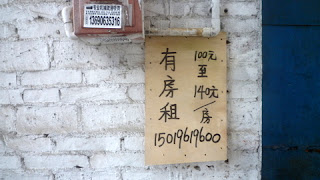 13690635316
有房租
100元
至
140元/房
15019619600